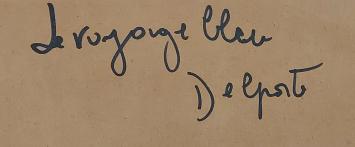 Le voyage bleu
Delporte